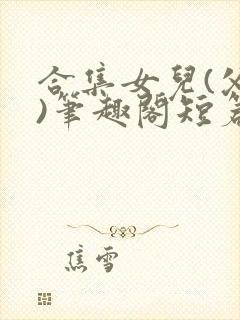 合集女兒(
)筆趣閣短
焦雪